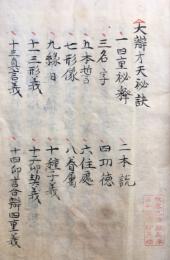 大辯才天秘訣
一四重秘釋　二本説
三名字　四功德
五本誓　六住處
七形像　八眷屬
九緣日　十種子義
十一三形義　十二印契義
十三真言義　十四印言合辯四重義